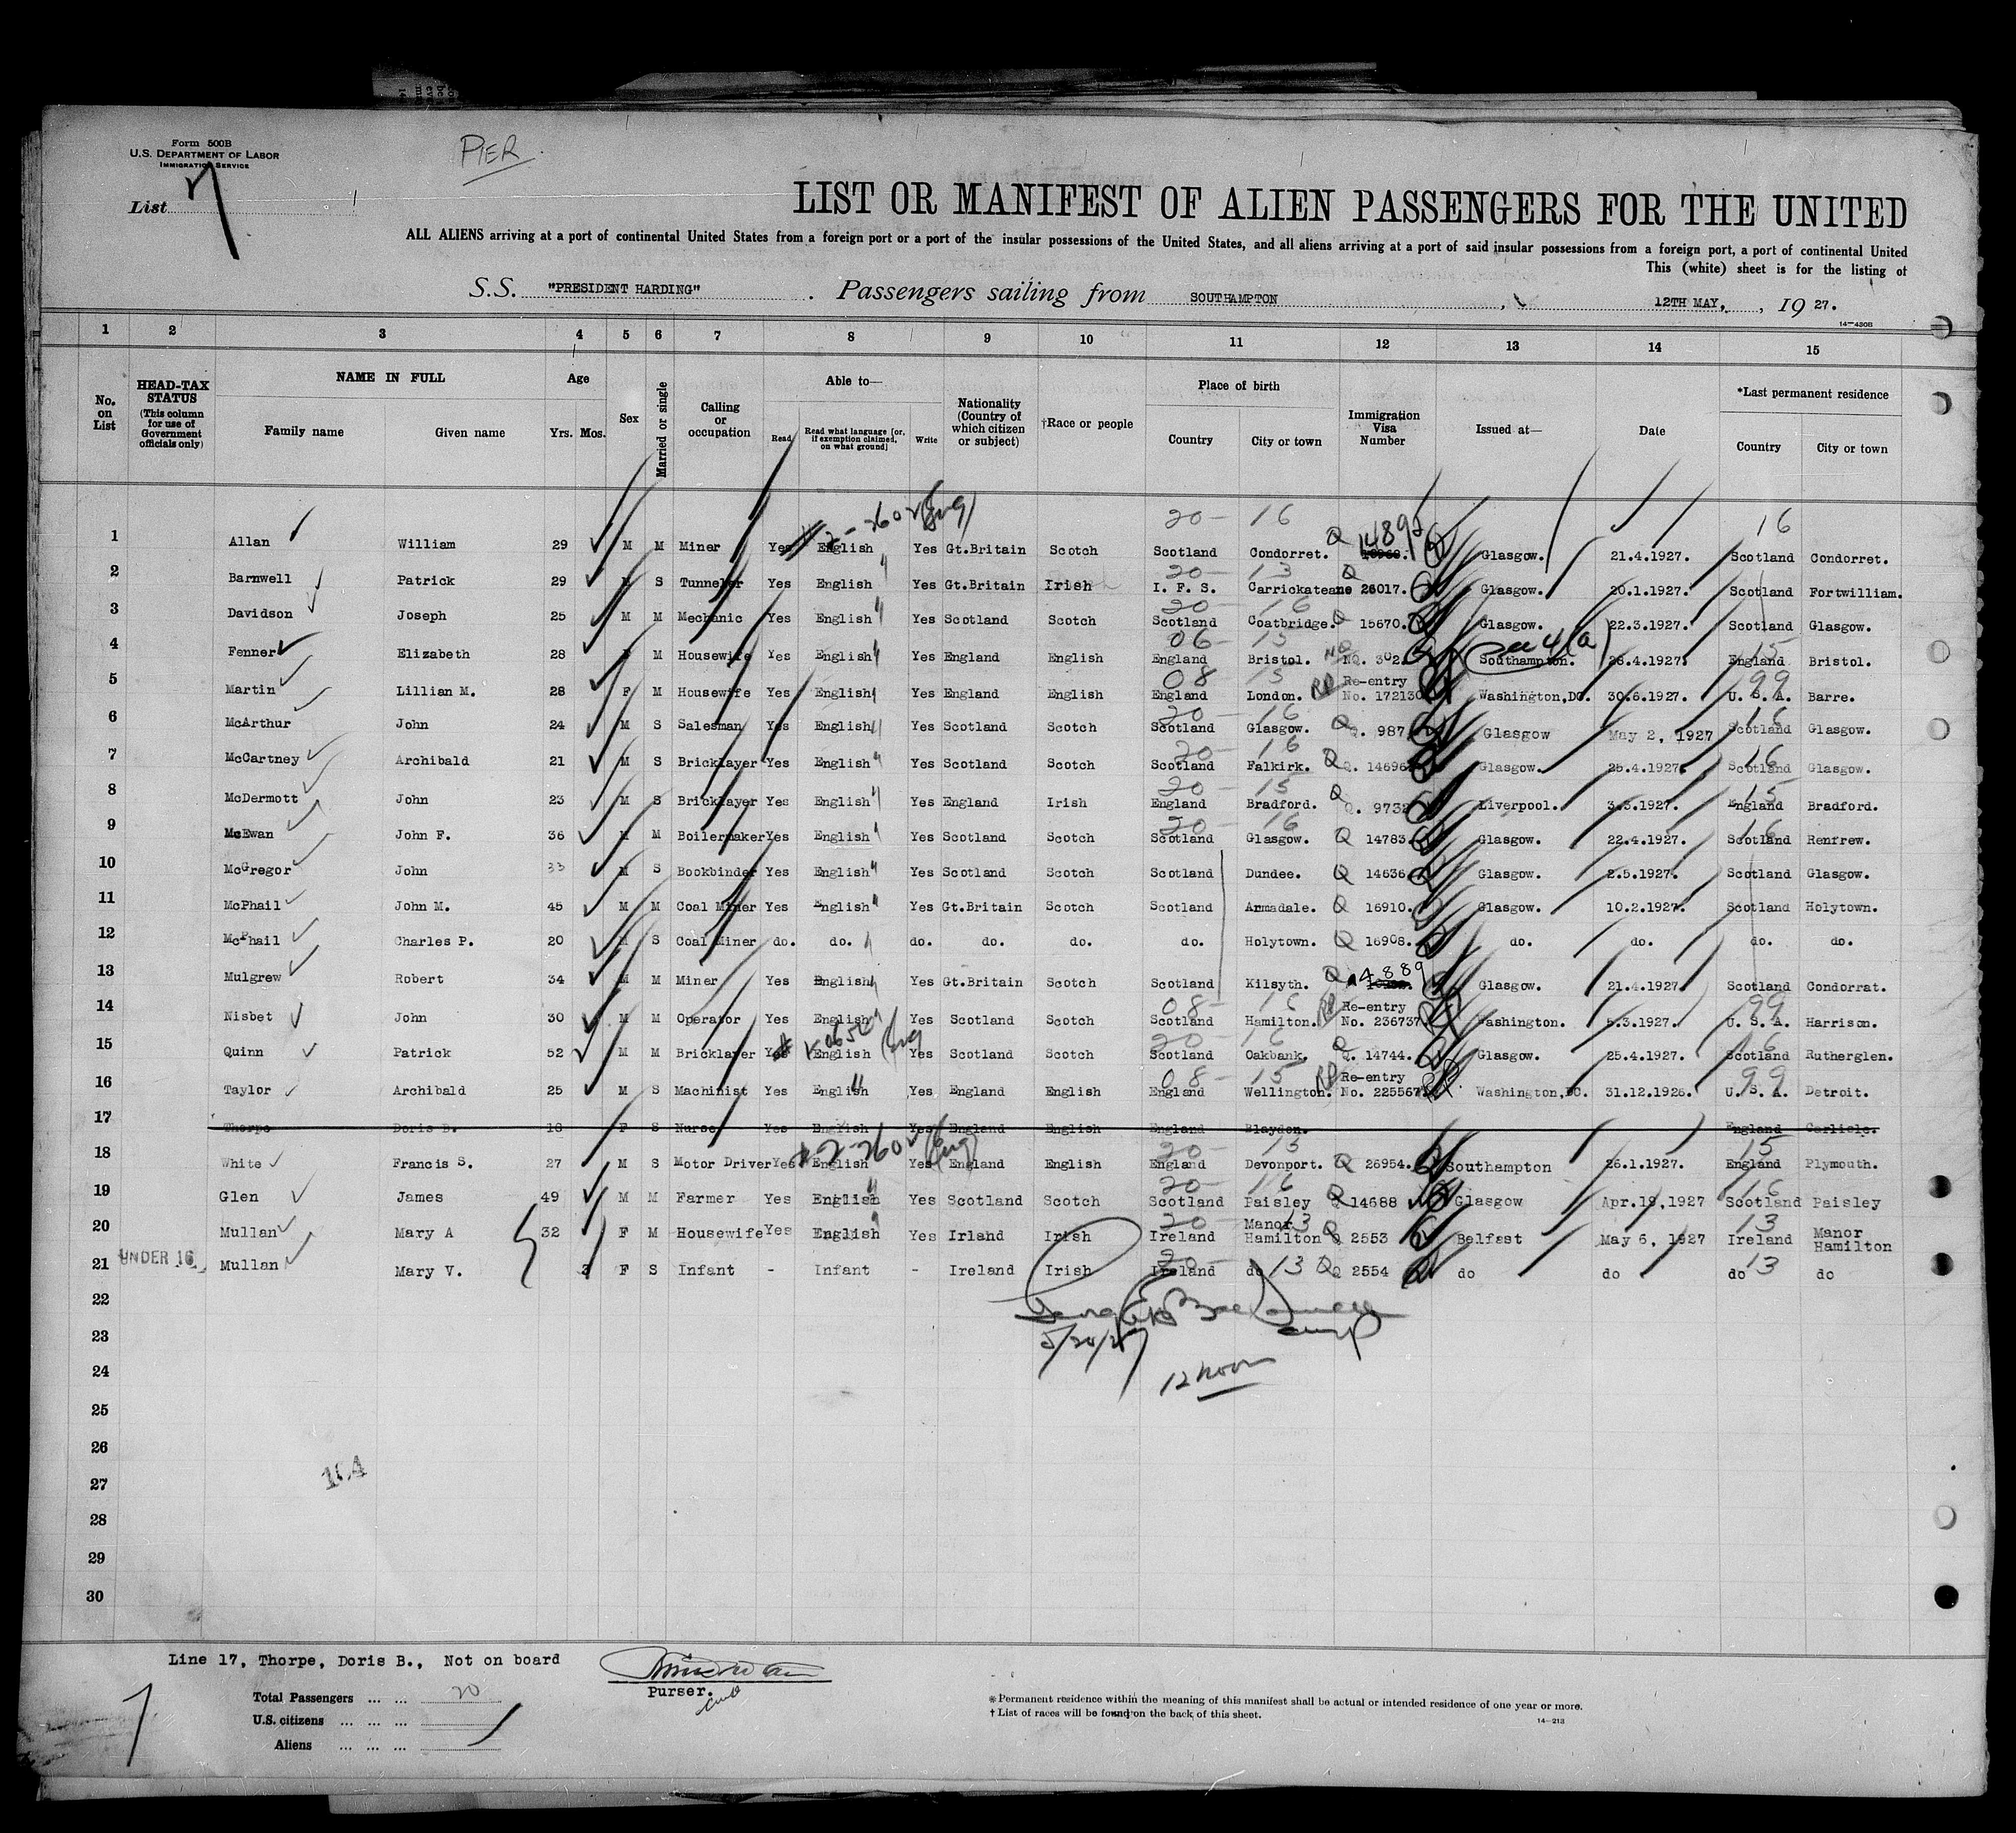 Form 500B
U.S. DEPARTMENT OF LABOR
IMMIGRATION SERVICE
PIER
List 7
LIST OR MANIFEST OF ALIEN PASSENGERS FOR THE UNITED
ALL ALIENS arriving at a port of continental United States from a foreign port or a port of the insular possessions of the United States, and all aliens arriving at a port of said insular possessions from a foreign port, a port of continental United
This (white) sheet is for the listing of
S.S. "PRESIDENT HARDING" . Passengers sailing from SOUTHAMPTON , 12TH MAY, , 19 27.
14—430B
1 2 3 4 5 6 7 8 9 10 11 12 13 14 15
No. on List HEAD-TAX STATUS (This column for use of Government officials only) NAME IN FULL Family name Given name Age Yrs. Mos. Sex Married or single Calling or occupation Able to— Read Read what language [or, if exemption claimed, on what ground] Write Nationality (Country of which citizen or subject) †Race or people Place of birth Country City or town Immigration Visa Number Issued at— Date *Last permanent residence Country City or town
20- 16 16
1 Allan William 29 M M Miner Yes English Yes Gt.Britain Scotch Scotland Condorret. Q Glasgow. 21.4.1927. Scotland Condorret.
20- 13
2 Barnwell Patrick 29 M S Tunneler Yes English Yes Gt.Britain Irish I. F. S. Carrickateane Q 26017. Glasgow. 20.1.1927. Scotland Fortwilliam.
20- 16
3 Davidson Joseph 25 M M Mechanic Yes English Yes Scotland Scotch Scotland Coatbridge. Q 15670. Glasgow. 22.3.1927. Scotland Glasgow.
06- 15 15
4 Fenner Elizabeth 28 M Housewife Yes English Yes England English England Bristol. NQ. 302. Southampton. 26.4.1927. England Bristol.
08 15 99
5 Martin Lillian M. 28 F M Housewife Yes English Yes England English England London. Re-entry No. 172130 Washington,DC. 30.6.1927. U. S. A. Barre.
20- 16 16
6 McArthur John 24 M S Salesman Yes English Yes Scotland Scotch Scotland Glasgow. Q. 987 Glasgow May 2, 1927 Scotland Glasgow.
20- 16 16
7 McCartney Archibald 21 M S Bricklayer Yes English Yes Scotland Scotch Scotland Falkirk. Q. 14696 Glasgow. 25.4.1927. Scotland Glasgow.
20- 15 15
8 McDermott John 23 M S Bricklayer Yes English Yes England Irish England Bradford. Q. 9732 Liverpool. 3.3.1927. England Bradford.
20- 16 16
9 McEwan John F. 36 M M Boilermaker Yes English Yes Scotland Scotch Scotland Glasgow. Q 14783. Glasgow. 22.4.1927. Scotland Renfrew.
10 McGregor John 33 M S Bookbinder Yes English Yes Scotland Scotch Scotland Dundee. Q 14636. Glasgow. 2.5.1927. Scotland Glasgow.
11 McPhail John M. 45 M M Coal Miner Yes English Yes Gt.Britain Scotch Scotland Armadale. Q 16910. Glasgow. 10.2.1927. Scotland Holytown.
12 McPhail Charles P. 20 M S Coal Miner do. do. do. do. do. do. Holytown. Q 16908. do. do. do. do.
13 Mulgrew Robert 34 M M Miner Yes English Yes Gt.Britain Scotch Scotland Kilsyth. Q Glasgow. 21.4.1927. Scotland Condorrat.
08- 16 99
14 Nisbet John 30 M M Operator Yes English Yes Scotland Scotch Scotland Hamilton. Re-entry No. 236737 Washington. 5.3.1927. U. S. A. Harrison.
20- 16 16
15 Quinn Patrick 52 M M Bricklayer Yes English Yes Scotland Scotch Scotland Oakbank. Q. 14744. Glasgow. 25.4.1927. Scotland Rutherglen.
08- 15 99
16 Taylor Archibald 25 M S Machinist Yes English Yes England English England Wellington. Re-entry No. 225567 Washington,DC. 31.12.1926. U. S. A. Detroit.
17 Thorpe Doris B. 18 F S Nurse Yes English Yes England English England Blaydon. England Carlisle.
20- 15 15
18 White Francis S. 27 M S Motor Driver Yes English Yes England English England Devonport. Q 26954. Southampton 26.1.1927. England Plymouth.
20- 16 16
19 Glen James 49 M M Farmer Yes English Yes Scotland Scotch Scotland Paisley Q 14688 Glasgow Apr.19,1927 Scotland Paisley
20- 13 13
20 Mullan Mary A 32 F M Housewife Yes English Yes Irland Irish Ireland Manor Hamilton Q 2553 Belfast May 6, 1927 Ireland Manor Hamilton
UNDER 16
20- 13 13
21 Mullan Mary V. 3 F S Infant - Infant - Ireland Irish Ireland do Q 2554 do do do do
22
23
5/20/27
24
12 noon
25
26
27
28
29
30
Line 17, Thorpe, Doris B., Not on board
Purser.
Total Passengers ... ... 20
U.S. citizens ... ... ...
Aliens ... ... ...
7
*Permanent residence within the meaning of this manifest shall be actual or intended residence of one year or more.
† List of races will be found on the back of this sheet.
14—213